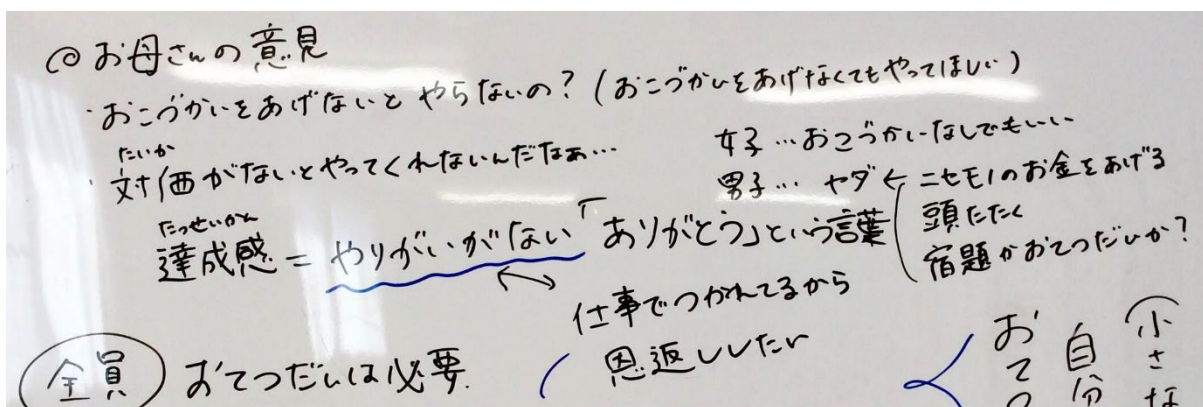 ◎お母さんの意見
・おこづかいをあげないとやらないの?(おこづかいをあげなくてもやってほしい)
たいか
・対価がないとやってくれないんだなぁ…
女子…おこづかいなしでもいい
男子…ヤダ←ニセモノのお金をあげる
頭たたく
宿題かおてつだいか?
たっせいかん
達成感=やりがいがない「ありがとう」という言葉
↔
仕事でつかれてるから
恩返ししたい
全員 おてつだいは必要
(小さな
自分
おてつ